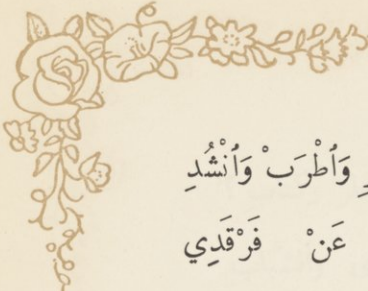 وَٱطْرَبْ وَٱنْشُدِ
عَنْ فَرْقَدِي